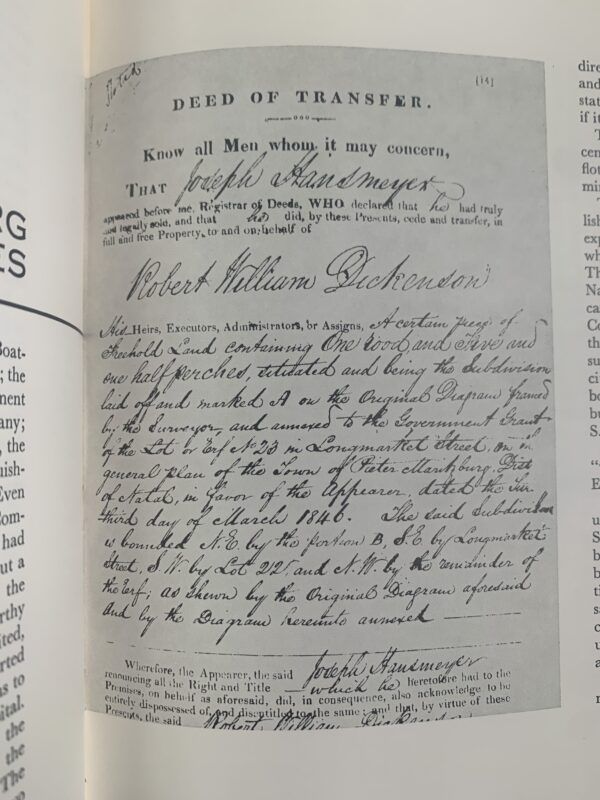 RG
ES
Boat-
; the
ment
any;
, the
uish-
Even
Com-
had
out a
the
rthy
ited,
orted
as to
ital.
the
the
The
[14]
DEED OF TRANSFER.
Know all Men whom it may concern,
THAT Joseph Hansmeyer
appeared before me, Registrar of Deeds, WHO declared that he had truly
and legally sold, and that he did, by these Presents, cede and transfer, in
full and free Property, to and on behalf of
Robert William Dickenson
His Heirs, Executors, Administrators, or Assigns, A certain piece of
Freehold Land containing One rood and Five and
one half perches, situated and being the Subdivision
laid off and marked A on the Original Diagram framed
by the Surveyor, and annexed to the Government Grant
of the Lot or Erf No 23 in Longmarket Street, on
general plan of the Town of Pieter Maritzburg, Dist
of Natal, in favor of the Appearer, dated the
third day of March 1846. The said Subdivision
is bounded N.E. by the portion B, S.E. by Longmarket
Street, S.W. by Lot 22, and N.W. by the remainder of
the Erf; as shewn by the Original Diagram aforesaid
and by the Diagram hereunto annexed
Wherefore, the Appearer, the said Joseph Hansmeyer
renouncing all the Right and Title which he heretofore had to the
Premises, on behalf as aforesaid, did, in consequence, also acknowledge to be
entirely dispossessed of, and disentitled to the same; and that, by virtue of these
Presents, the said Robert William Dickenson
dire
and
stat
if it
T
cen
flot
min
T
lish
exp
wh
Th
Na
ca
Co
the
su
ci
bo
bu
S.
E
u
S
b
b
ti
sa
o
u
a